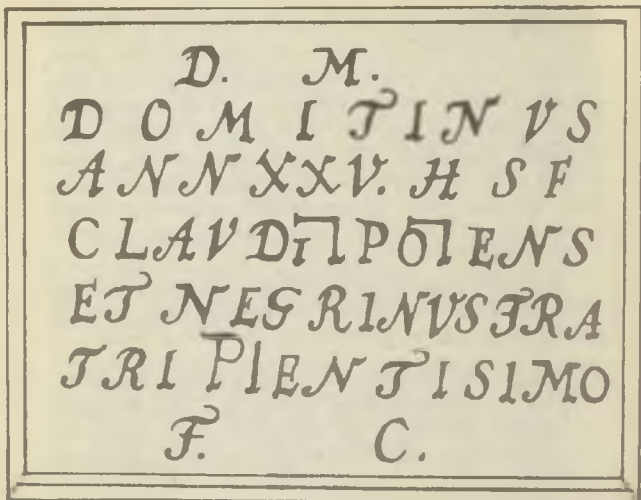 D. M.
DOMITINVS
ANN XXV. H S F
CLAVDI POTENS
ET NEGRINVS FRA
TRI PIENTISIMO
F. C.